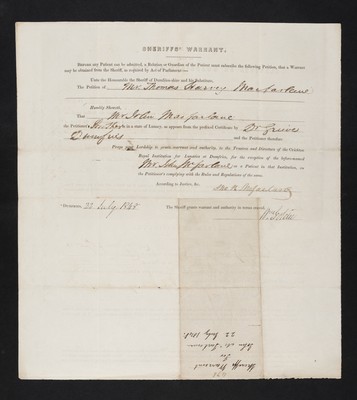 SHERIFFS' WARRANT.
BEFORE any Patient can be admitted, a Relation or Guardian of the Patient must subscribe the following Petition, that a Warrant
may be obtained from the Sheriff, as required by Act of Parliament:—
Unto the Honourable the Sheriff of Dumfries-shire and his Substitutes,
The Petition of Mr. Thomas Harvey Macfarlane
Humbly Sheweth,
That Mr John Macfarlane
the Petitioner's Brother is in a state of Lunacy, as appears from the prefixed Certificate by Dr Grieve
Dumfries and the Petitioner therefore
Prays your Lordship to grant warrant and authority, to the Trustees and Directors of the Crichton
Royal Institution for Lunatics at Dumfries, for the reception of the before-named
Mr. John Mcfarlane a Patient in that Institution, on
the Petitioner's complying with the Rules and Regulations of the same.
According to Justice, &c.
Tho H Mcfarlane
Dumfries, 22 July 1848 The Sheriff grants warrant and authority in terms craved.
Sheriffs Warrant
for
John McFarlane
22 July 1848